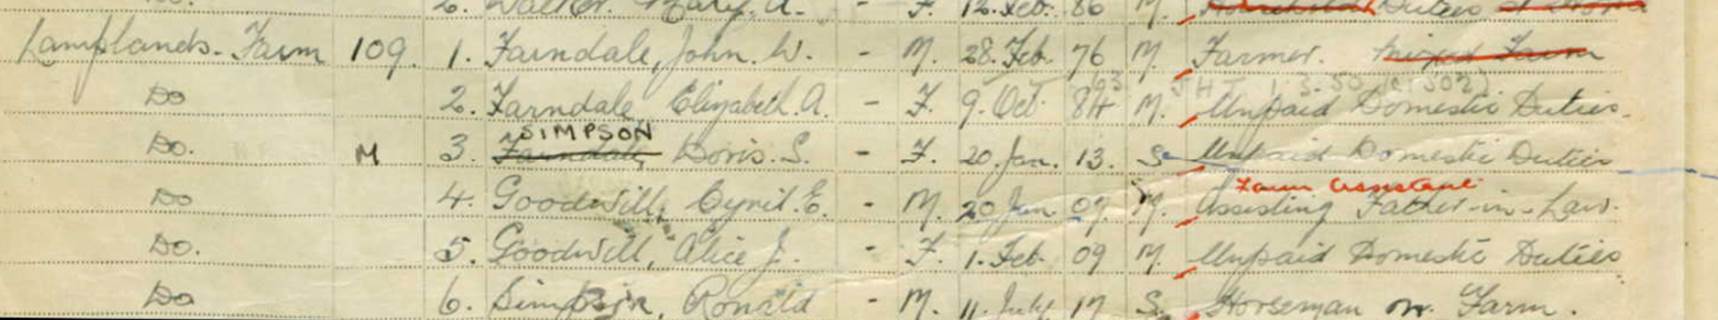 2. Walker. Mary. A. - F. 12. Feb. 86 M. Duties
Lamplands. Farm 109. 1. Farndale, John. W. - M. 28. Feb. 76 M. Farmer. Mixed Farm
Do 2. Farndale, Elizabeth. A. - F. 9. Oct 84 M. Unpaid Domestic Duties.
SIMPSON
Do. M 3. Farndale, Doris. S. - F. 20. Jan. 13. S Unpaid Domestic Duties
Farm assistant
Do 4. Goodwill, Cyril. E. - M. 20 Jan 07. M. Assisting Father-in-Law.
Do. 5. Goodwill, Alice J. - F. 1. Feb. 09 M. Unpaid Domestic Duties
Do 6. Simpson, Ronald - M. 11. July 17 S. Horseman on Farm.